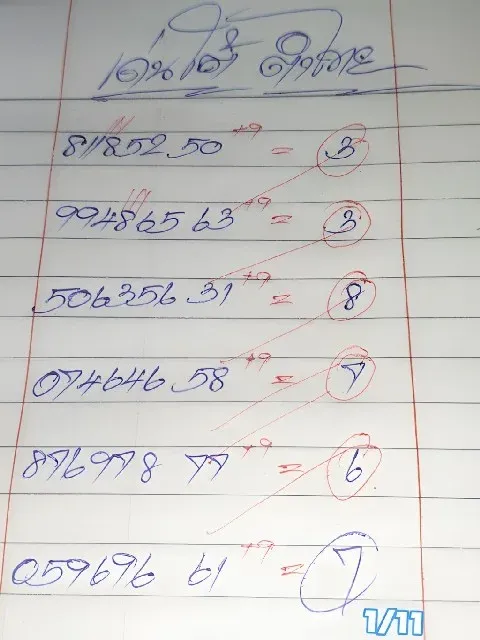 เด่นใต้ ลำไย
811852 50 +9 = 3
994865 63 +9 = 3
506356 31 +9 = 8
074646 58 +9 = 7
876978 77 +9 = 6
059696 61 +9 = 7
1/11